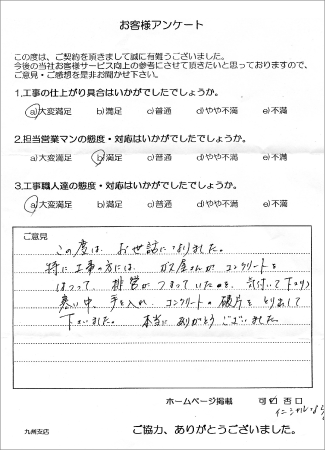 お客様アンケート
この度は、ご契約を頂きまして誠に有難うございました。
今後の当社お客様サービス向上の参考にさせて頂きたいと思っておりますので、
ご意見・ご感想を是非お聞かせ下さい。
1.工事の仕上がり具合はいかがでしたでしょうか。
a)大変満足 b)満足 c)普通 d)やや不満 e)不満
2.担当営業マンの態度・対応はいかがでしたでしょうか。
a)大変満足 b)満足 c)普通 d)やや不満 e)不満
3.工事職人達の態度・対応はいかがでしたでしょうか。
a)大変満足 b)満足 c)普通 d)やや不満 e)不満
ご意見
この度は、お世話になりました。
特に工事の方には、ガス屋さんがコンクリートを
はつって、排管がつまっていたのを、気付いて下さり
寒い中、手を入れ、コンクリートの破片をとり出して
下さいました。本当にありがとうございました。
ホームページ掲載 可 否
イニシャルなら
九州支店
ご協力、ありがとうございました。